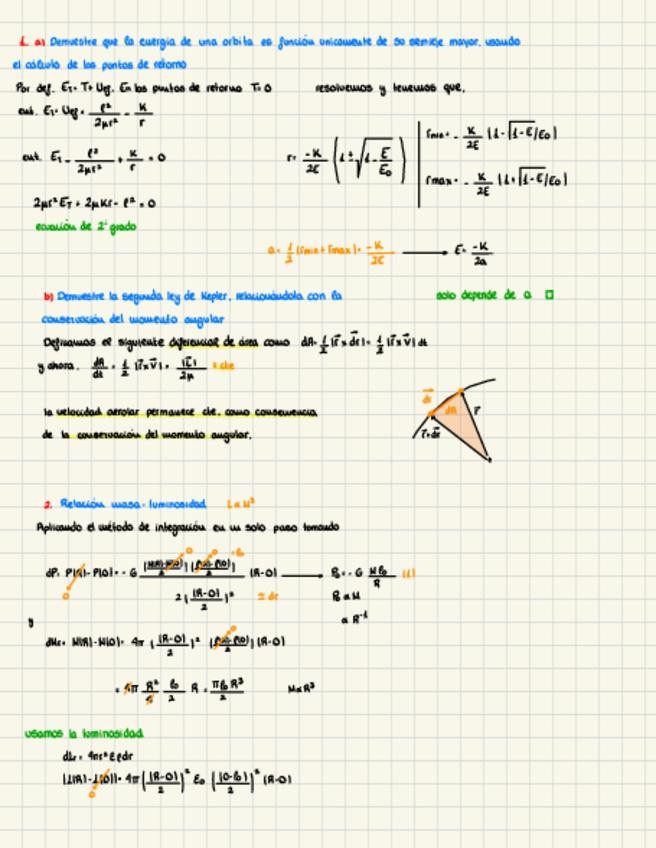 1. a) Demuestre que la energia de una orbita es función unicamente de su semieje mayor, usando
el cálculo de los puntos de retorno
Por def. E_T = T + U_eff. En los puntos de retorno T=0
resolvemos y tenemos que,
ent. E_T = U_eff = ℓ²/2μr² - K/r
ent. E_T - ℓ²/2μr² + K/r = 0
r = -K/2E (1 ± √(1 - E/E₀))
r_min = - K/2E (1 - √(1-E/E₀))
r_max = - K/2E (1 + √(1-E/E₀))
2μr²E_T + 2μKr - ℓ² = 0
ecuación de 2º grado
a = 1/2 (r_min + r_max) = -K/2E → E = -K/2a
solo depende de a □
b) Demuestre la segunda ley de Kepler, relacionándola con la
conservación del momento angular
Definamos el siguiente diferencial de área como dA = 1/2 |r⃗ x dr⃗| = 1/2 |r⃗ x v⃗| dt
y ahora. dA/dt = 1/2 |r⃗ x v⃗| = |L⃗|/2μ = cte
la velocidad aerolar permanece cte, como consecuencia
de la conservación del momento angular.
dr⃗
dA
r⃗
r⃗+dr⃗
2. Relación masa-luminosidad L ∝ M³
Aplicando el método de integración en un solo paso tomando
P₀ ∝ M
∝ R⁻¹
y
M ∝ R³
usamos la luminosidad
dLr = 4πr²ερdr